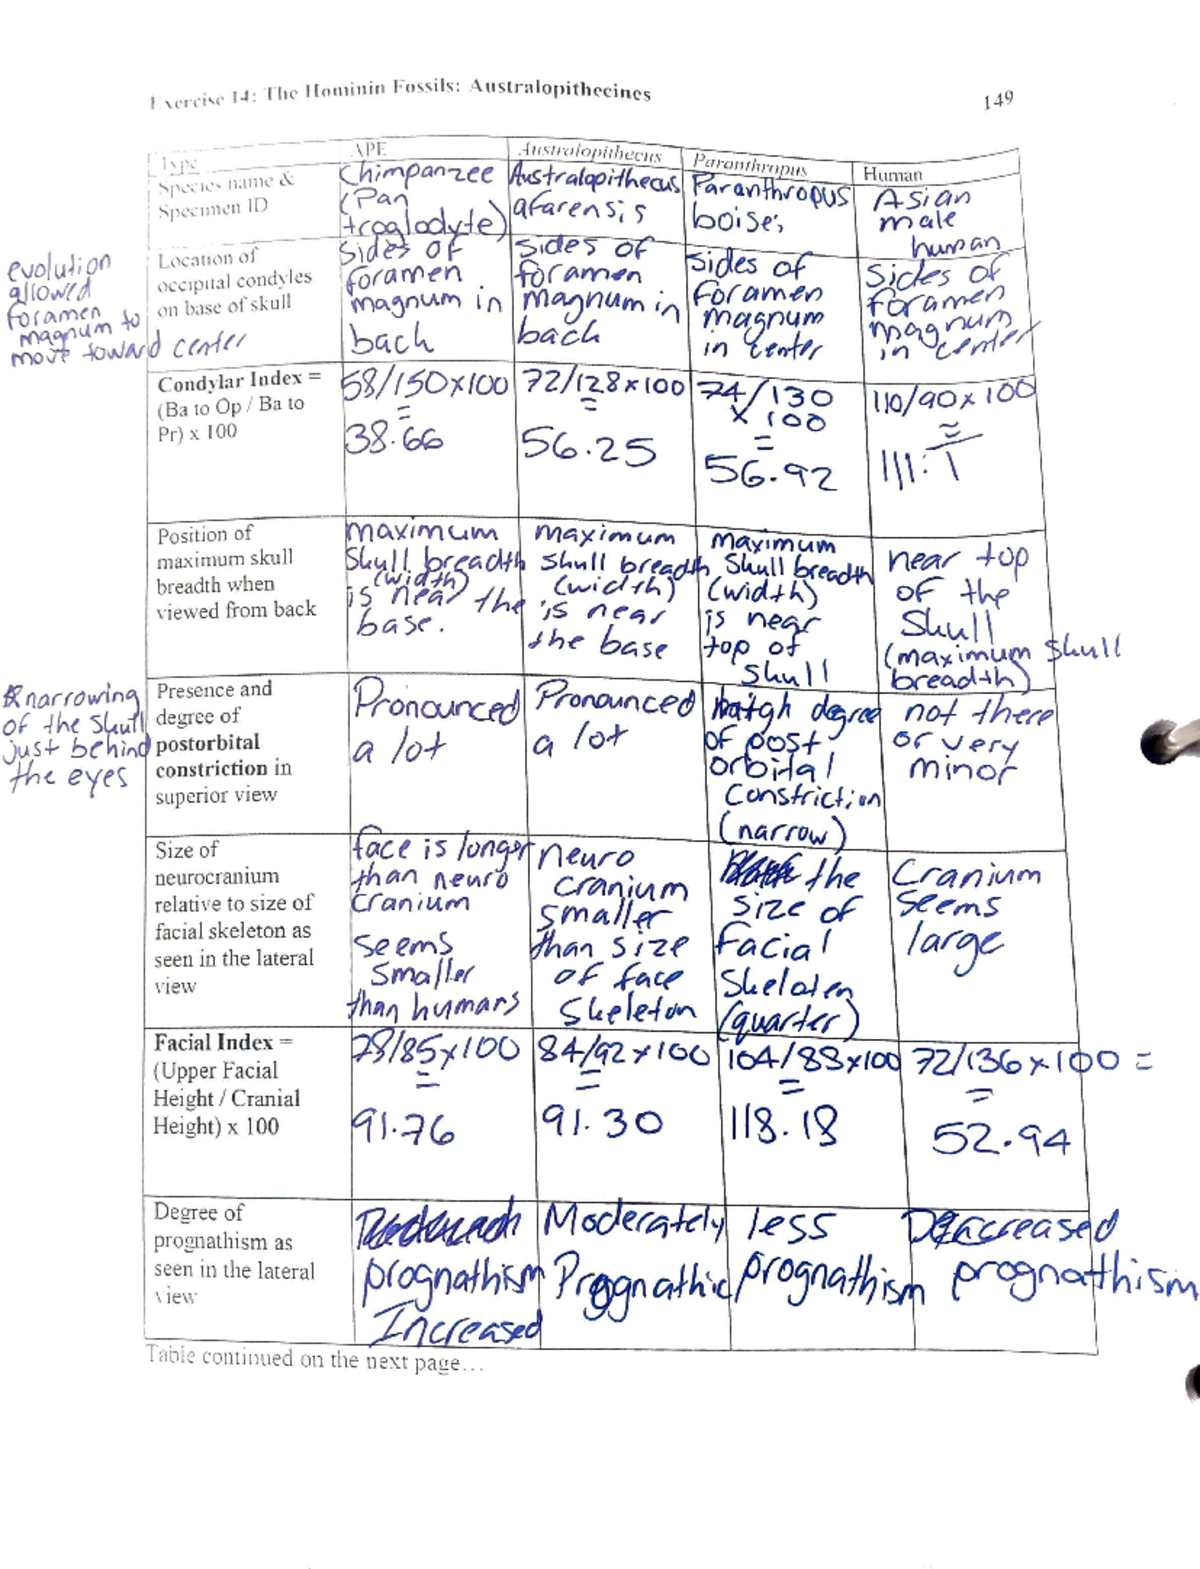 Exercise 14: The Hominin Fossils: Australopithecines
149
Type
APE
Australopithecus
Paranthropus
Human
Species name &
Specimen ID
Chimpanzee
(Pan
troglodyte)
Australopithecus
afarensis
Paranthropus
boisei
Asian
male
human
evolution
allowed
foramen
magnum to
move toward center
Location of
occipital condyles
on base of skull
Sides of
foramen
magnum in
back
sides of
foramen
magnum in
back
sides of
foramen
magnum
in center
Sides of
foramen
magnum
in center
Condylar Index =
(Ba to Op / Ba to
Pr) x 100
58/150x100
=
38.66
72/128x100
=
56.25
74/130
x 100
=
56.92
110/90x100
≈
111.1
Position of
maximum skull
breadth when
viewed from back
maximum
skull breadth
(width)
is near the
base.
maximum
skull breadth
(width)
is near
the base
maximum
skull breadth
(width)
is near
top of
skull
near top
of the
skull
(maximum skull
breadth)
narrowing
of the skull
just behind
the eyes
Presence and
degree of
postorbital
constriction in
superior view
Pronounced
a lot
Pronounced
a lot
high degree
of post
orbital
constriction
(narrow)
not there
or very
minor
Size of
neurocranium
relative to size of
facial skeleton as
seen in the lateral
view
face is longer
than neuro
cranium
seems
smaller
than humans
neuro
cranium
smaller
than size
of face
skeleton
the
size of
facial
skelaten
(quarter)
Cranium
seems
large
Facial Index =
(Upper Facial
Height / Cranial
Height) x 100
78/85x100
=
91.76
84/92x100
=
91.30
104/88x100
=
118.18
72/136x100 =
=
52.94
Degree of
prognathism as
seen in the lateral
view
prognathism
Increased
Moderately
Prognathic
less
prognathism
Decreased
prognathism
Table continued on the next page…